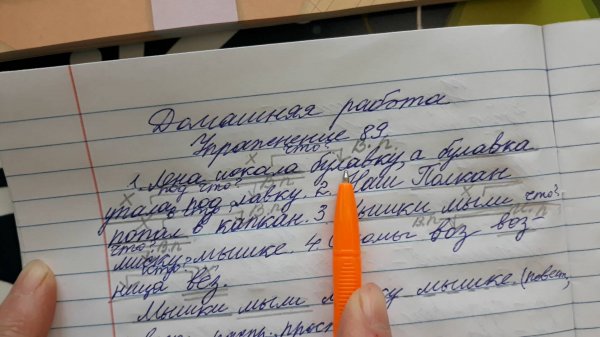 Домашняя работа
Упражнение 89
что? В.п.
1. Лена искала булавку, а булавка
под что?
упала под лавку. 2. Наш Полкан
В.п. что?
попал в капкан. 3. Мышки мыли
что? В.п.
миску мышке. 4. Соломы воз воз-
ница вёз.
Мышки мыли мышке. (повест.,